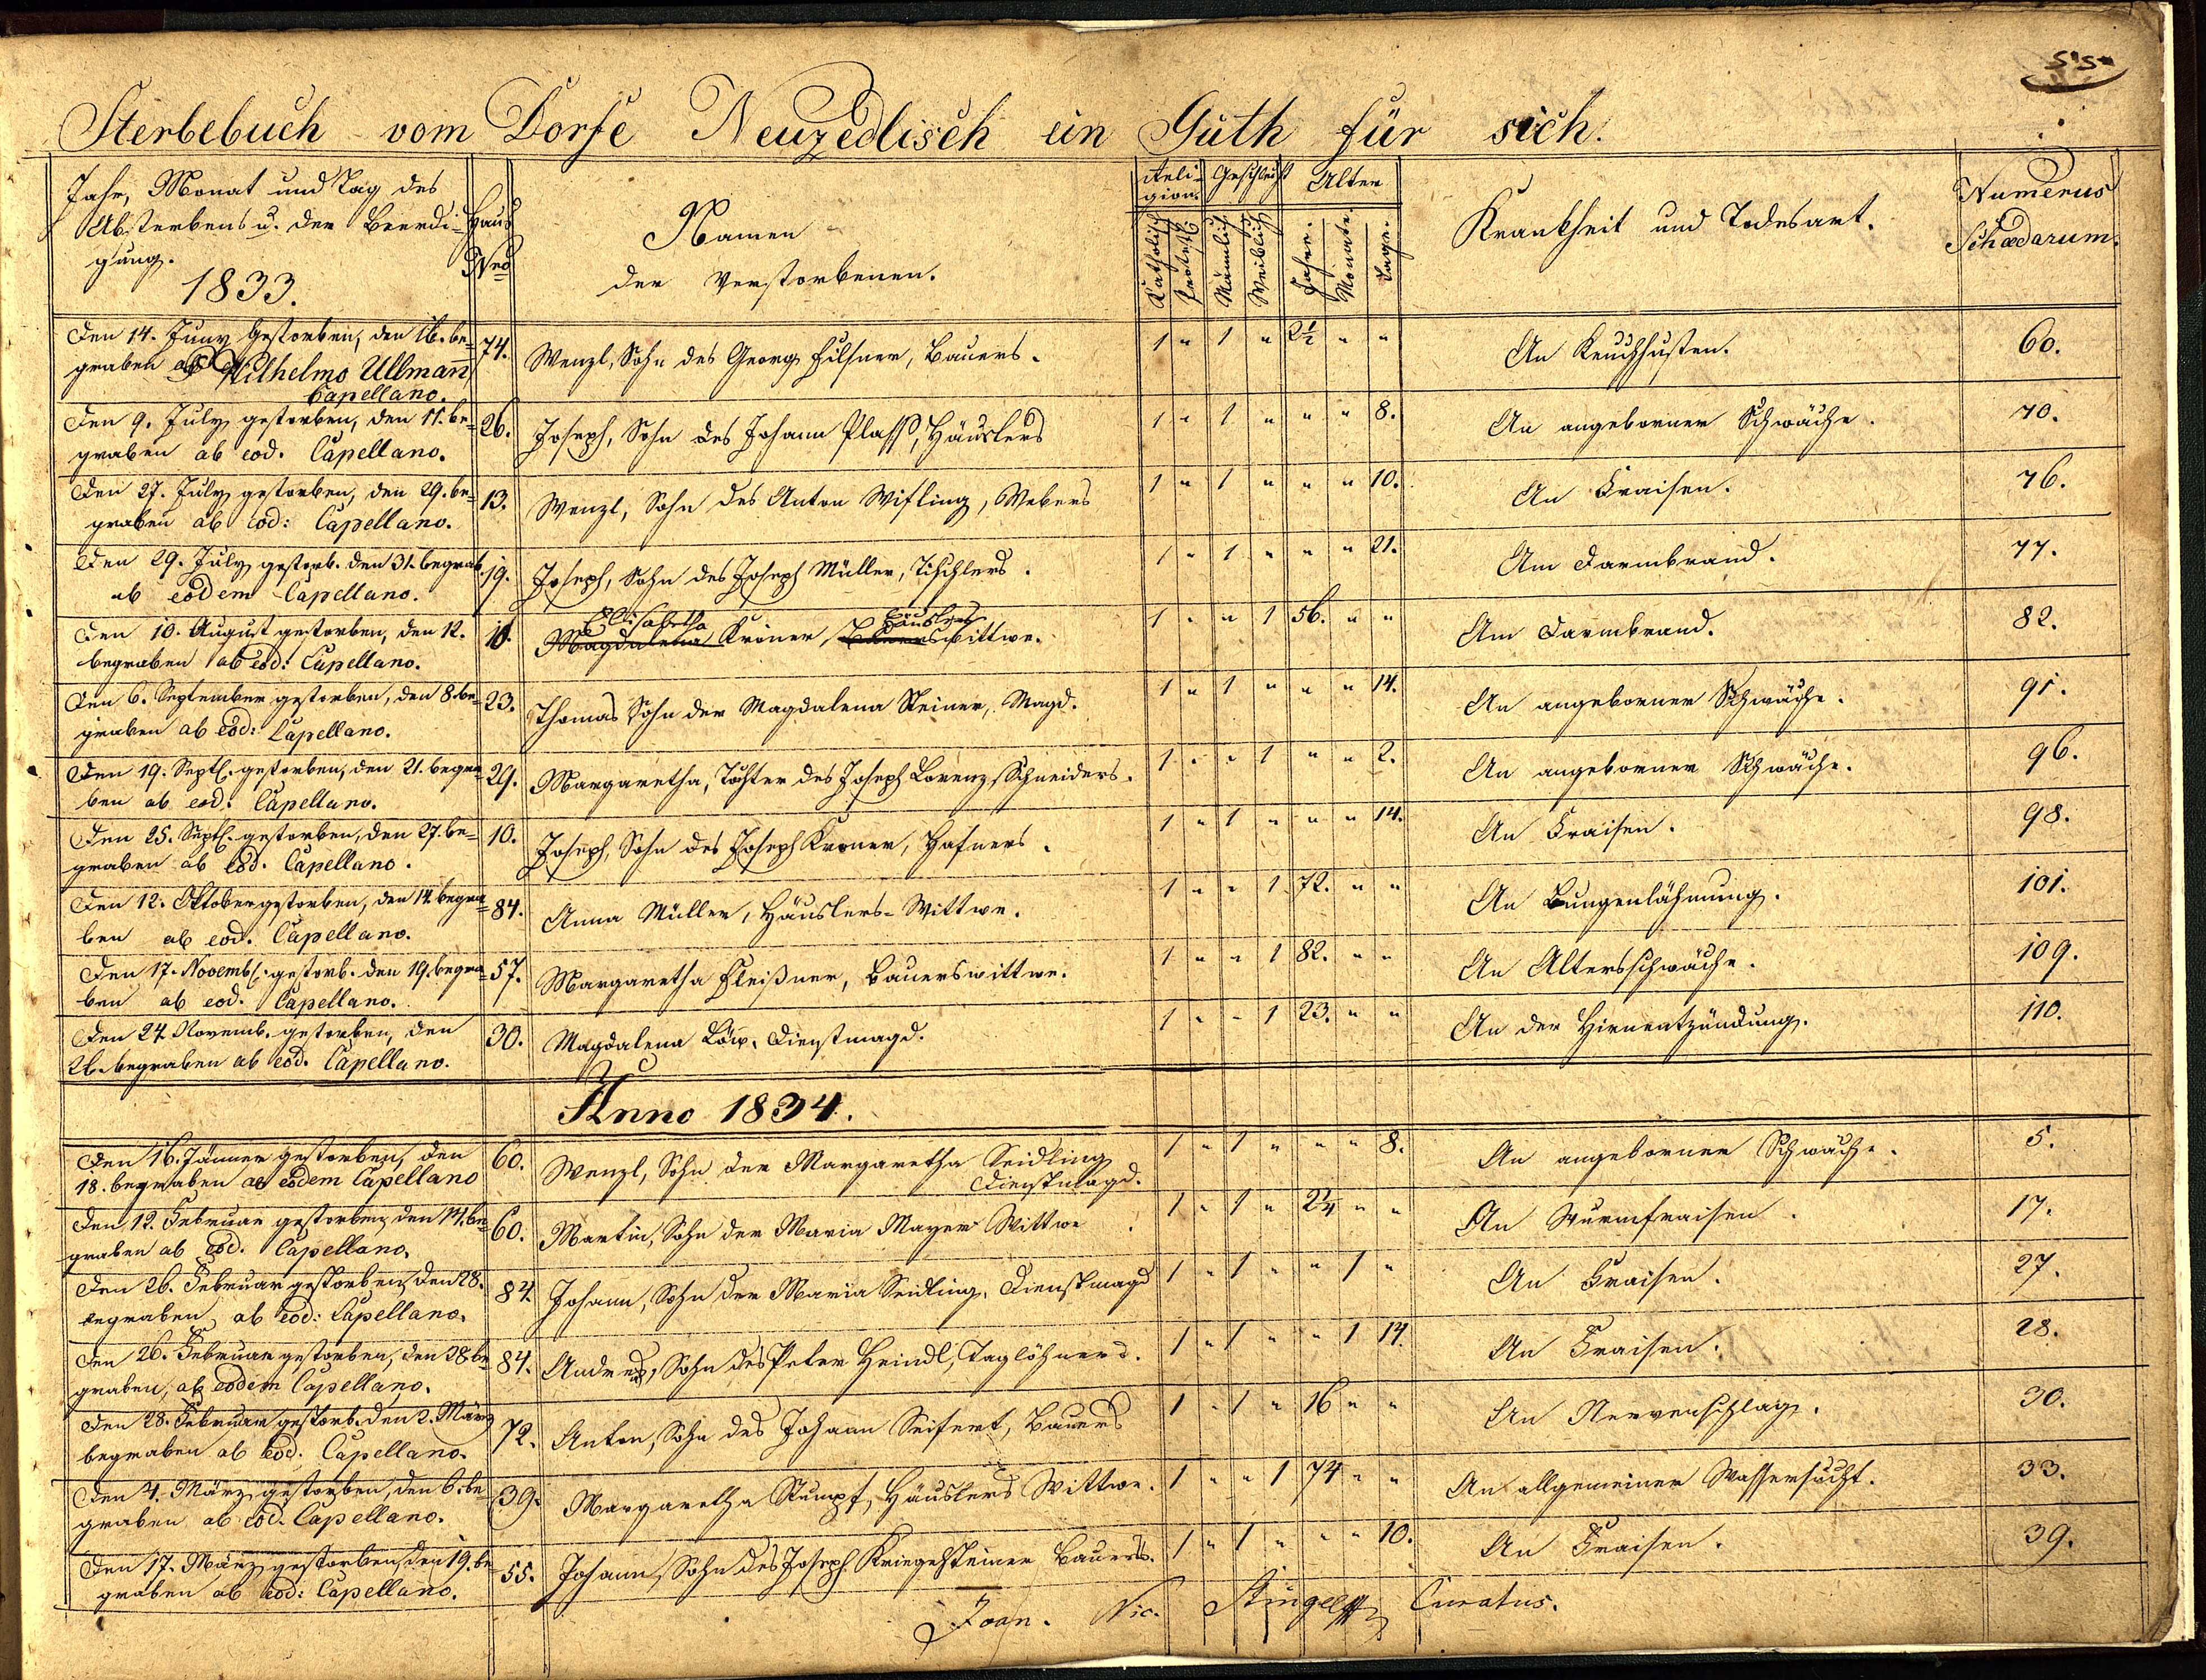 55.
Sterbebuch vom Dorfe Neuzedlisch ein Guth für sich.
Jahr, Monat und Tag des
Absterbens u. der Beerdi-
gung.
1833.
Haus
Nro
Namen
der Verstorbenen.
Reli-
gion.
Katholisch
Protest.
Geschlecht
Männlich
Weiblich
Alter
Jahre.
Monate.
Tage.
Krankheit und Todesart.
Numerus
Schædarum.
Den 14. Juny Gestorben, den 16. be- 74. Wenzl, Sohn des Georg Filsner, Bauers. 1 " 1 " 2½ " " An Keuchhusten. 60.
graben ab Wilhelmo Ullmann
Capellano.
Den 9. July gestorben, den 11. be- 26. Joseph, Sohn des Johann Plass, Häuslers 1 " 1 " " " 8. An angeborner Schwäche. 70.
graben ab eod. Capellano.
Den 27. July gestorben, den 29. be- 13. Wenzl, Sohn des Anton Wisling, Webers 1 " 1 " " " 10. An Fraisen. 76.
graben ab eod: Capellano.
Den 29. July gestorb. den 31. begrab. 19. Joseph, Sohn des Joseph Müller, Tischlers. 1 " 1 " " " 21. Am Darmbrand. 77.
ab eodem Capellano.
Ellisabetha Häuslers
Den 10. August gestorben, den 12. 10. Magdalena Kroner, Bauerswittwe. 1 " " 1 56. " " Am Darmbrand. 82.
begraben ab eod: Capellano.
Den 6. September gestorben, den 8. be- 23. Thomas Sohn der Magdalena Steiner, Magd. 1 " 1 " " " 14. An angeborner Schwäche. 91.
graben ab eod: Capellano.
Den 19. Septb. gestorben, den 21. begra- 29. Margaretha, Tochter des Joseph Lorenz, Schneiders. 1 " " 1 " " 2. An angeborner Schwäche. 96.
ben ab eod: Capellano.
Den 25. Septb. gestorben, den 27. be- 10. Joseph, Sohn des Joseph Kroner, Hafners. 1 " 1 " " " 14. An Fraisen. 98.
graben ab eod. Capellano.
Den 12. Oktober gestorben, den 14. begra- 84. Anna Müller, Häuslers-Wittwe. 1 " " 1 72. " " An Lungenlähmung. 101.
ben ab eod. Capellano.
Den 17. Novemb. gestorb. den 19. begra- 57. Margaretha Fleißner, Bauerswittwe. 1 " " 1 82. " " An Altersschwäche. 109.
ben ab eod. Capellano.
Den 24. Novemb. gestorben, den 30. Magdalena Löw, Dienstmagd. 1 " " 1 23. " " An der Hirnentzündung. 110.
26. begraben ab eod. Capellano.
Anno 1834.
Den 16. Jänner gestorben, den 60. Wenzl, Sohn der Margaretha Seidling 1 " 1 " " " 8. An angeborner Schwäche. 5.
18. begraben ab eodem Capellano Dienstmagd.
Den 12. Februar gestorben, den 14. be- 60. Martin, Sohn der Maria Mayer Wittwe. 1 " 1 " 2¼ " " An Wurmfraisen. 17.
graben ab eod. Capellano.
Den 26. Februar gestorben, den 28. 84. Johann, Sohn der Maria Seidling, Dienstmagd 1 " 1 " " 1 " An Fraisen. 27.
begraben, ab eod: Capellano.
Den 26. Februar gestorben, den 28. be- 84. Andreas, Sohn des Peter Heindl, Taglöhners. 1 " 1 " " 1 14. An Fraisen. 28.
graben, ab eodem Capellano.
Den 28. Februar gestorb. den 2. März 72. Anton, Sohn des Johann Seifert, Bauers 1 " 1 " 16 " " An Nervenschlag. 30.
begraben ab eod. Capellano.
Den 4. März gestorben, den 6. be- 39. Margaretha Stumpf, Häuslers Wittwe. 1 " " 1 74 " " An allgemeiner Wassersucht. 33.
graben ab eod. Capellano.
Den 17. März gestorben, den 19. be- 55. Johann, Sohn des Joseph Kriegelsteiner Bauers. 1 " 1 " " " 10. An Fraisen. 39.
graben ab eod: Capellano.
Joan. Nic. Stingl Curatus.